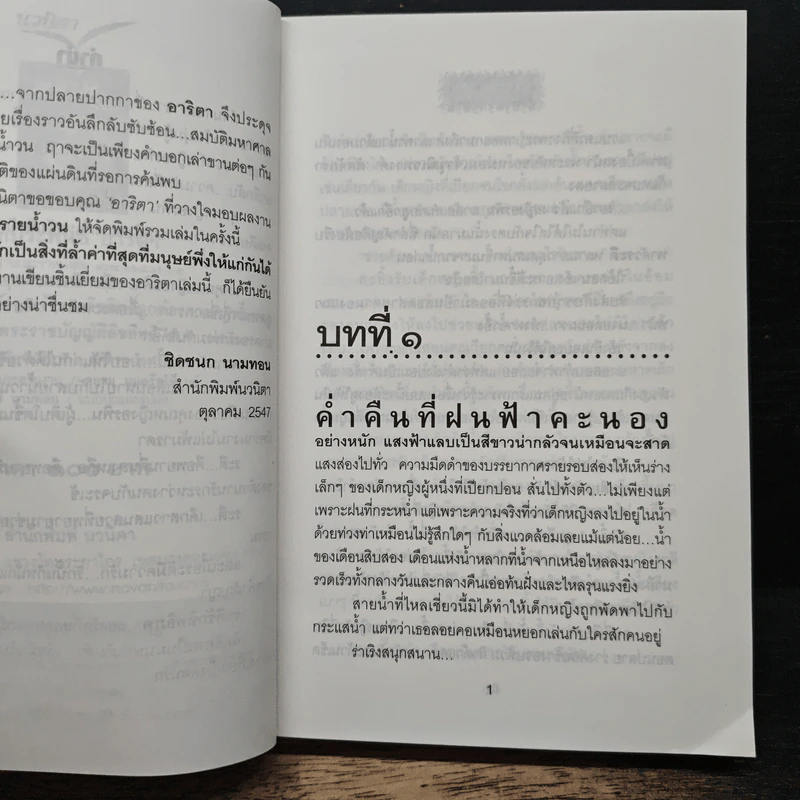 คำนำ
...จากปลายปากกาของ อาริตา จึงประดุจ
ยเรื่องราวอันลึกลับซับซ้อน...สมบัติมหาศาล
น้ำวน ฤาจะเป็นเพียงคำบอกเล่าขานต่อๆ กัน
ติของแผ่นดินที่รอการค้นพบ
นิตาขอขอบคุณ 'อาริตา' ที่วางใจมอบผลงาน
รายน้ำวน ให้จัดพิมพ์รวมเล่มในครั้งนี้
ักเป็นสิ่งที่ล้ำค่าที่สุดที่มนุษย์พึงให้แก่กันได้
านเขียนชิ้นเยี่ยมของอาริตาเล่มนี้ ก็ได้ยืนยัน
อย่างน่าชื่นชม
ชิดชนก นามทอน
สำนักพิมพ์นวนิตา
ตุลาคม 2547
บทที่ ๑
ค่ำคืนที่ฝนฟ้าคะนอง
อย่างหนัก แสงฟ้าแลบเป็นสีขาวน่ากลัวจนเหมือนจะสาด
แสงส่องไปทั่ว ความมืดดำของบรรยากาศรายรอบส่องให้เห็นร่าง
เล็กๆ ของเด็กหญิงผู้หนึ่งที่เปียกปอน สั่นไปทั้งตัว...ไม่เพียงแต่
เพราะฝนที่กระหน่ำ แต่เพราะความจริงที่ว่าเด็กหญิงลงไปอยู่ในน้ำ
ด้วยท่วงท่าเหมือนไม่รู้สึกใดๆ กับสิ่งแวดล้อมเลยแม้แต่น้อย...น้ำ
ของเดือนสิบสอง เดือนแห่งน้ำหลากที่น้ำจากเหนือไหลลงมาอย่าง
รวดเร็วทั้งกลางวันและกลางคืนเอ่อท้นฝั่งและไหลรุนแรงยิ่ง
สายน้ำที่ไหลเชี่ยวนี้มิได้ทำให้เด็กหญิงถูกพัดพาไปกับ
กระแสน้ำ แต่ทว่าเธอลอยคอเหมือนหยอกเล่นกับใครสักคนอยู่
ร่าเริงสนุกสนาน...
1